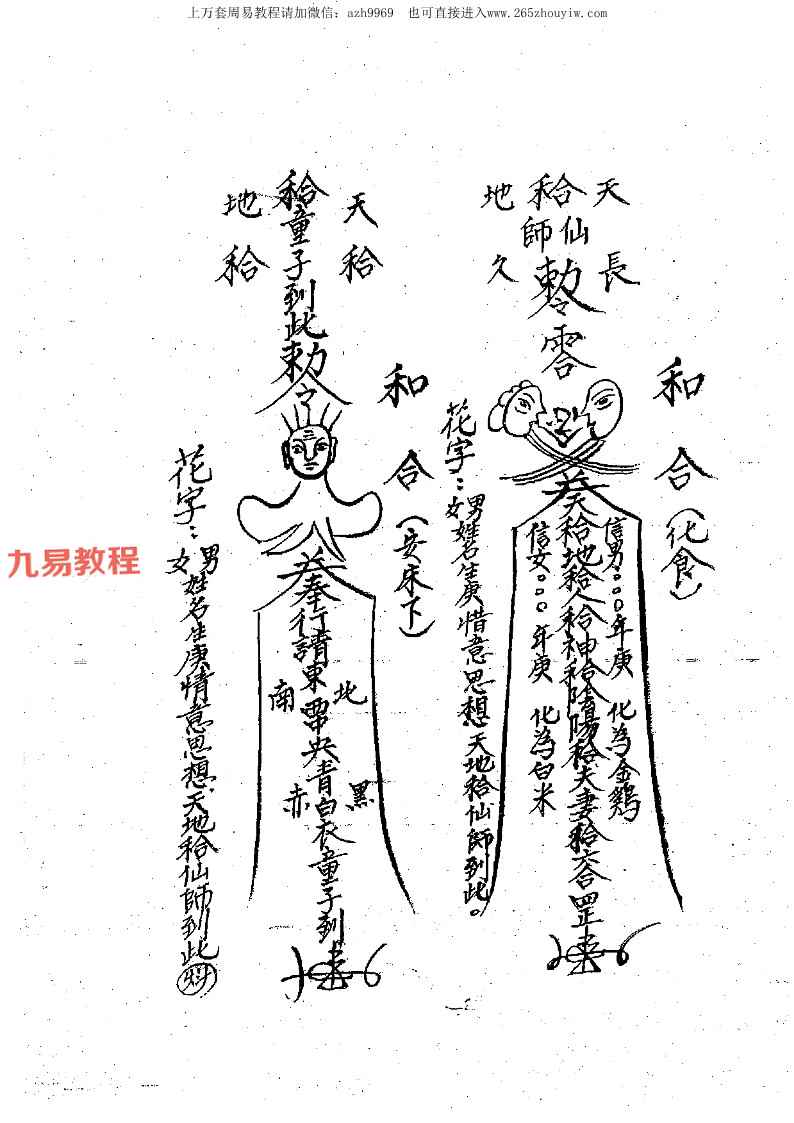 上万套周易教程请加微信：azh9969　也可直接进入www.265zhouyiw.com
和合（化食）
天長
和合仙師敕令
地久
奉天和合地和合人和合神和合陰陽和合夫妻和合六合罡
信男○○○年庚　化為金鷄
信女○○○年庚　化為白米
花字：男女姓名生庚惜意思想天地和合仙師到此。
和合（安床下）
天和合
和合童子到此敕令
地和合
奉行請東西南北中央青白赤黑衣童子到
花字：男女姓名生庚情意思想天地和合仙師到此
九易教程